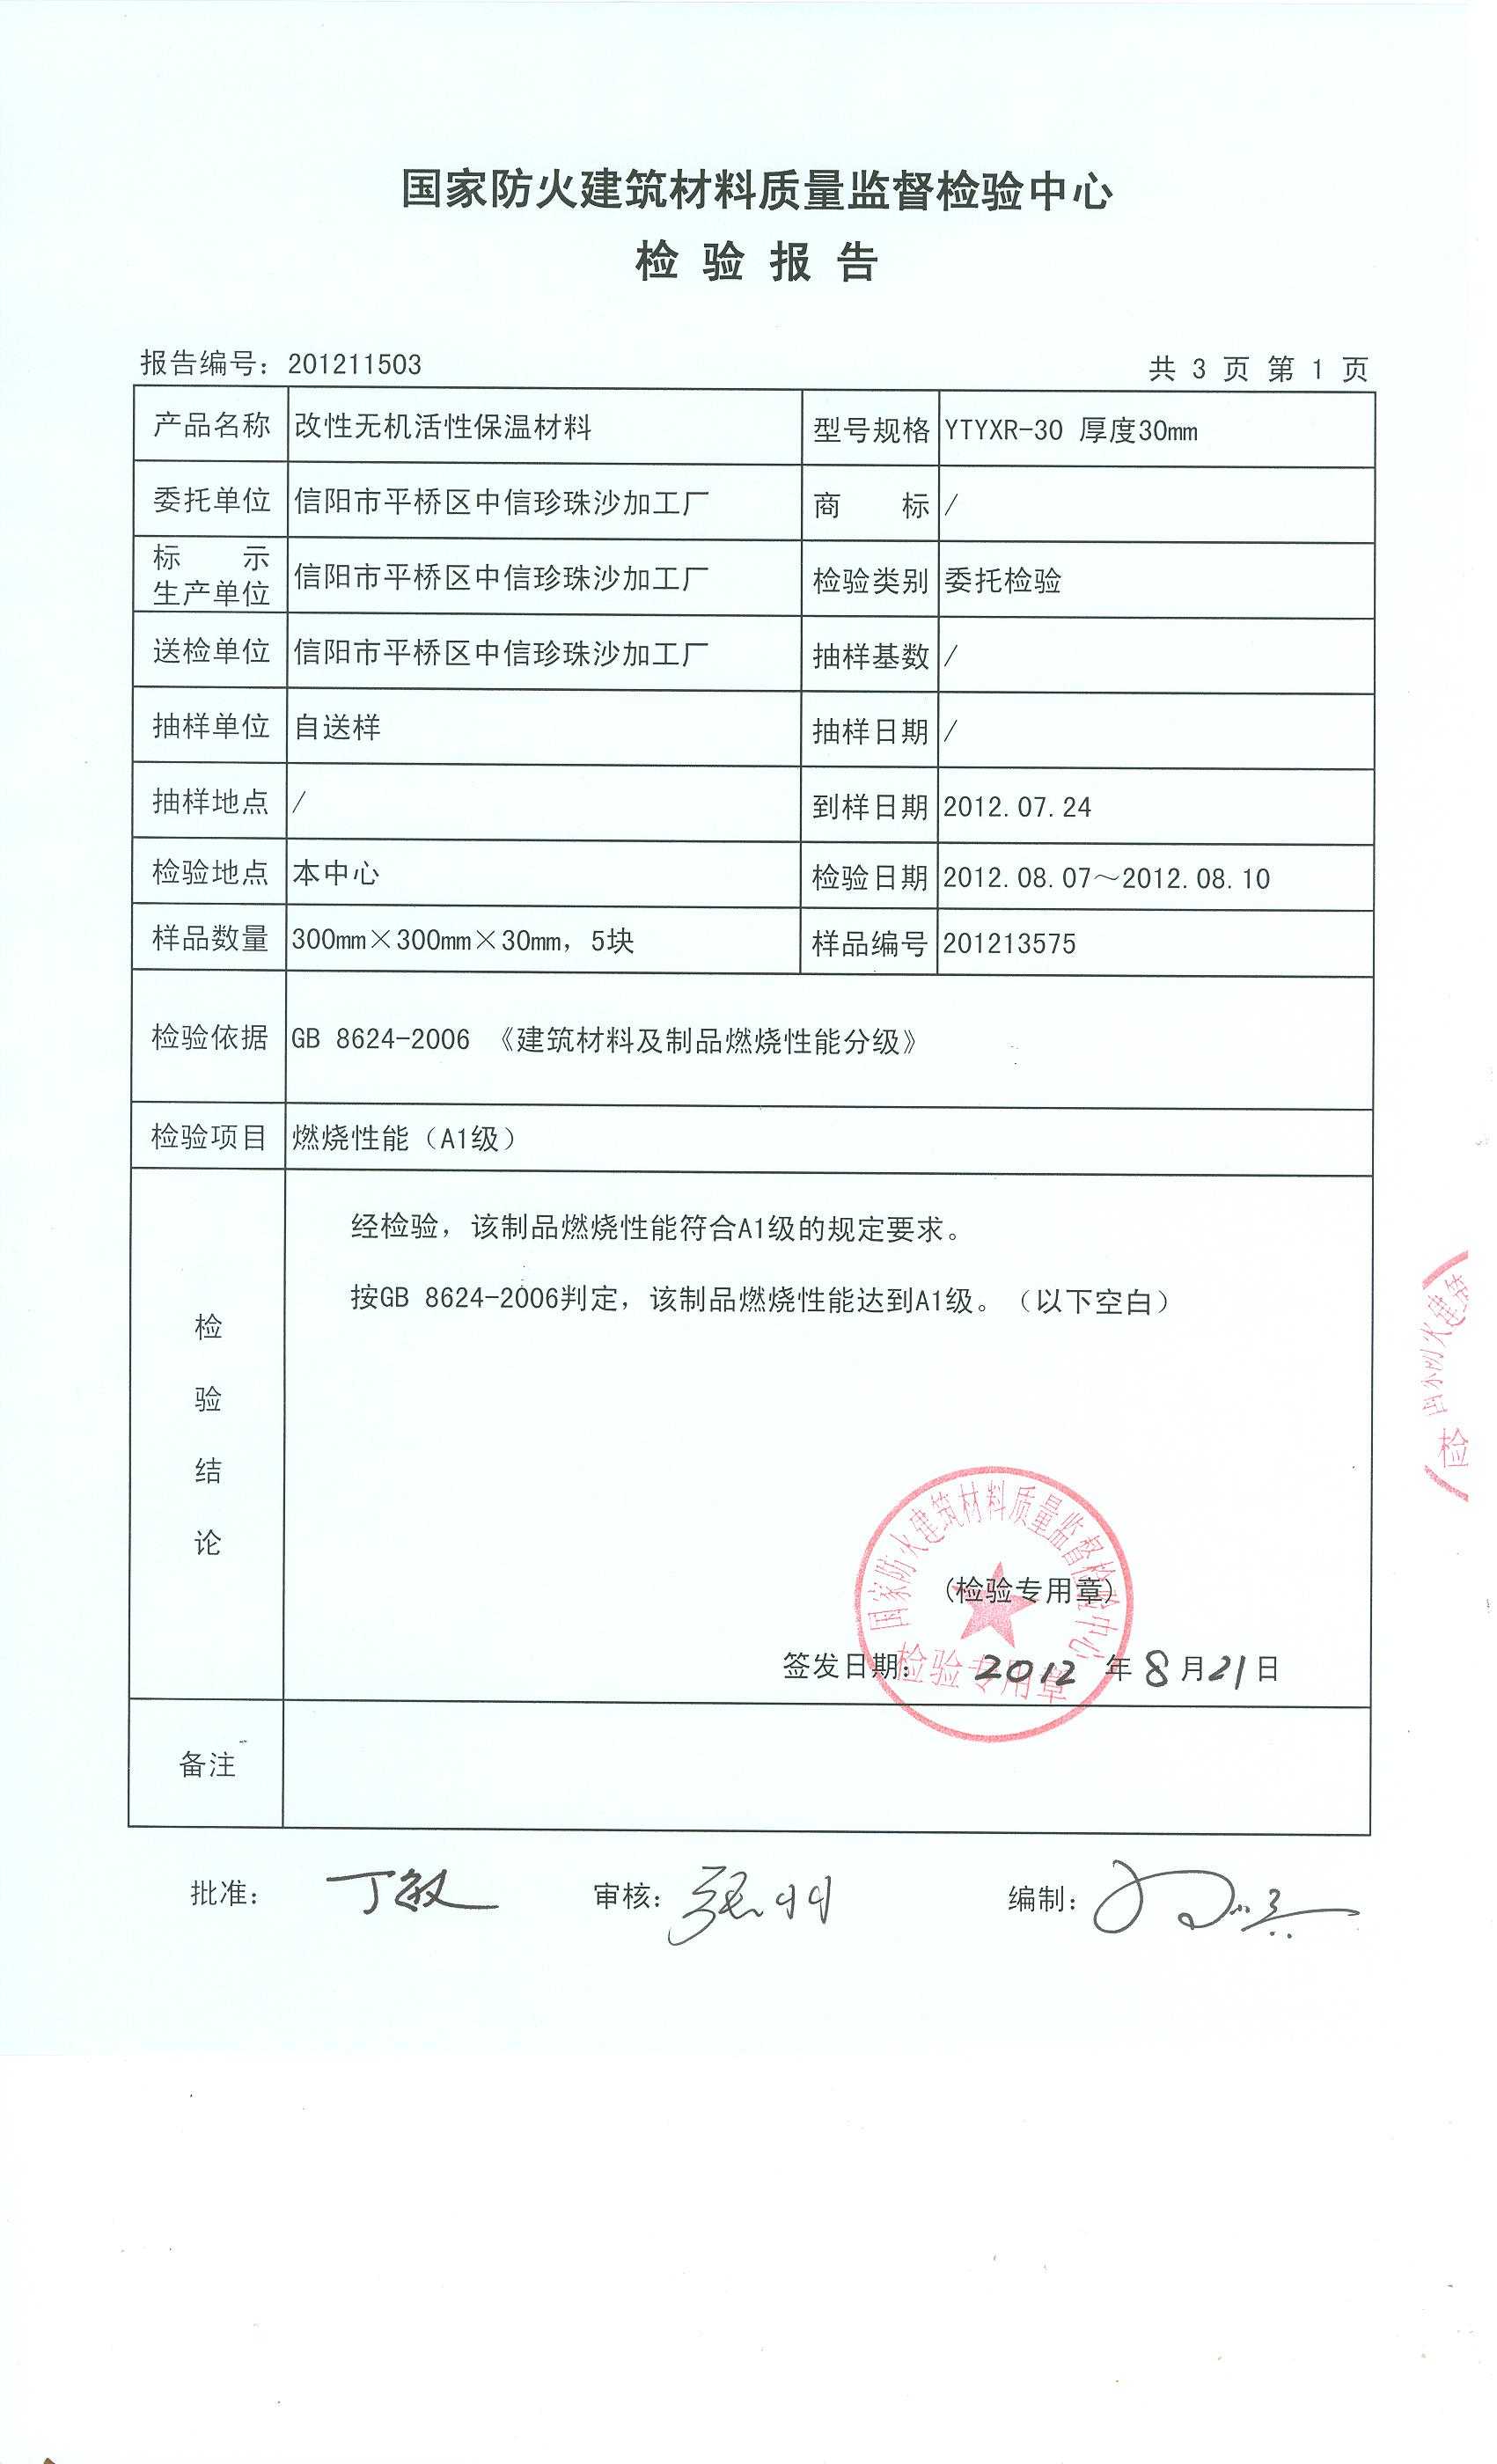 国家防火建筑材料质量监督检验中心
检 验 报 告
报告编号：201211503
共 3 页 第 1 页
产品名称 改性无机活性保温材料 型号规格 YTYXR-30 厚度30mm
委托单位 信阳市平桥区中信珍珠沙加工厂 商 标 /
标 示
生产单位 信阳市平桥区中信珍珠沙加工厂 检验类别 委托检验
送检单位 信阳市平桥区中信珍珠沙加工厂 抽样基数 /
抽样单位 自送样 抽样日期 /
抽样地点 / 到样日期 2012.07.24
检验地点 本中心 检验日期 2012.08.07～2012.08.10
样品数量 300mm×300mm×30mm，5块 样品编号 201213575
检验依据 GB 8624-2006 《建筑材料及制品燃烧性能分级》
检验项目 燃烧性能（A1级）
检验结论
经检验，该制品燃烧性能符合A1级的规定要求。
按GB 8624-2006判定，该制品燃烧性能达到A1级。（以下空白）
国家防火建筑材料质量监督检验中心
(检验专用章)
检验专用章
签发日期： 2012 年 8 月 21 日
备注
批准： 丁敏 审核： 编制：
火建筑
检